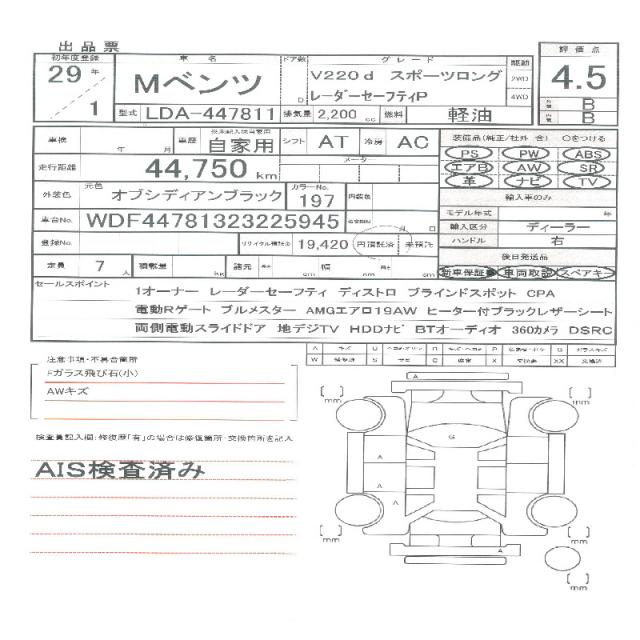 出品票
初年度登録 車名 ドア数 グレード 駆動 評価点
29年 Mベンツ D V220d スポーツロング 2WD 4.5
1 レーダーセーフティP 4WD
型式 LDA-447811 排気量 2,200 cc 燃料 軽油 外装 B
内装 B
車検 年 月 車歴 自家用 シフト AT 冷房 AC 装備品(純正/社外 含) ○をつける
PS PW ABS
走行距離 44,750 km メーター エアB AW SR
革 ナビ TV
外装色 元色 オブシディアンブラック カラーNo. 197 内装色 輸入車のみ
モデル年式 年
車台No. WDF44781323225945 輸入区分 ディーラー
登録No. リサイクル預託金 19,420 円預託済 未預託 ハンドル 右
後日発送品
定員 7人 積載量 kg 諸元 長さ cm 幅 cm 高さ cm 新車保証 車両取説 スペアキー
セールスポイント
1オーナー レーダーセーフティ ディストロ ブラインドスポット CPA
電動Rゲート ブルメスター AMGエアロ19AW ヒーター付ブラックレザーシート
両側電動スライドドア 地デジTV HDDナビ BTオーディオ 360カメラ DSRC
A キズ U P G ガラスキズ
W S サビ C X 交換済 XX
注意事項・不具合箇所
Fガラス飛び石(小)
AWキズ
検査員記入欄:修復歴「有」の場合は修復箇所・交換箇所を記入
AIS検査済み
A
mm mm
G
A
A
A
A
mm mm
mm